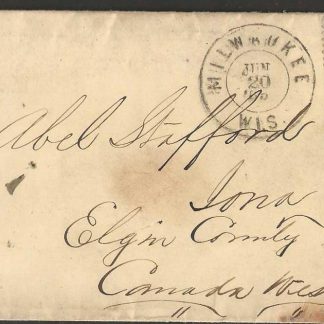 MILWAUKEE
JUN
20
WIS.
Abel Stafford
Iona
Elgin County
Canada Wes